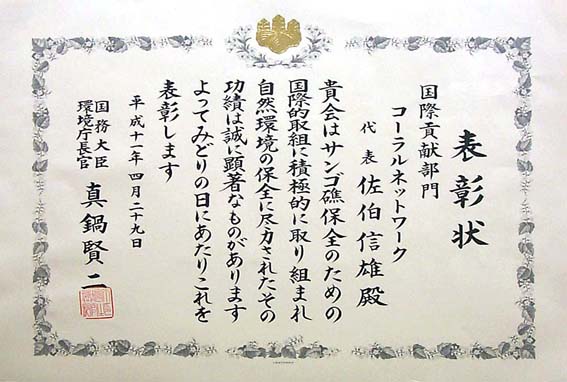 表彰状
国際貢献部門
コーラルネットワーク
代表 佐伯信雄殿
貴会はサンゴ礁保全のための
国際的取組に積極的に取り組まれ
自然環境の保全に尽力されたその
功績は誠に顕著なものがあります
よってみどりの日にあたりこれを
表彰します
平成十一年四月二十九日
国務大臣
環境庁長官 真鍋賢二